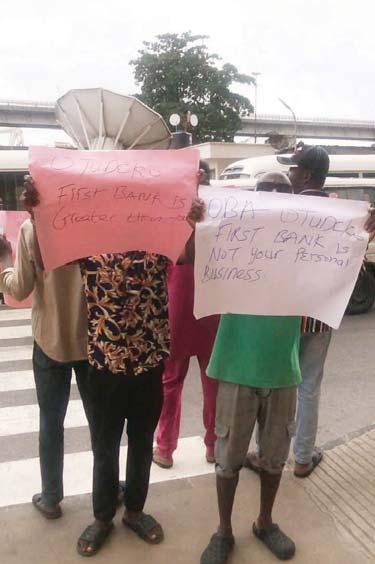 OTUDEKO
FIRST BANK IS
Greater than you
OBA OTUDEKO
FIRST BANK IS
NOT YOUR Personal
BUSINESS